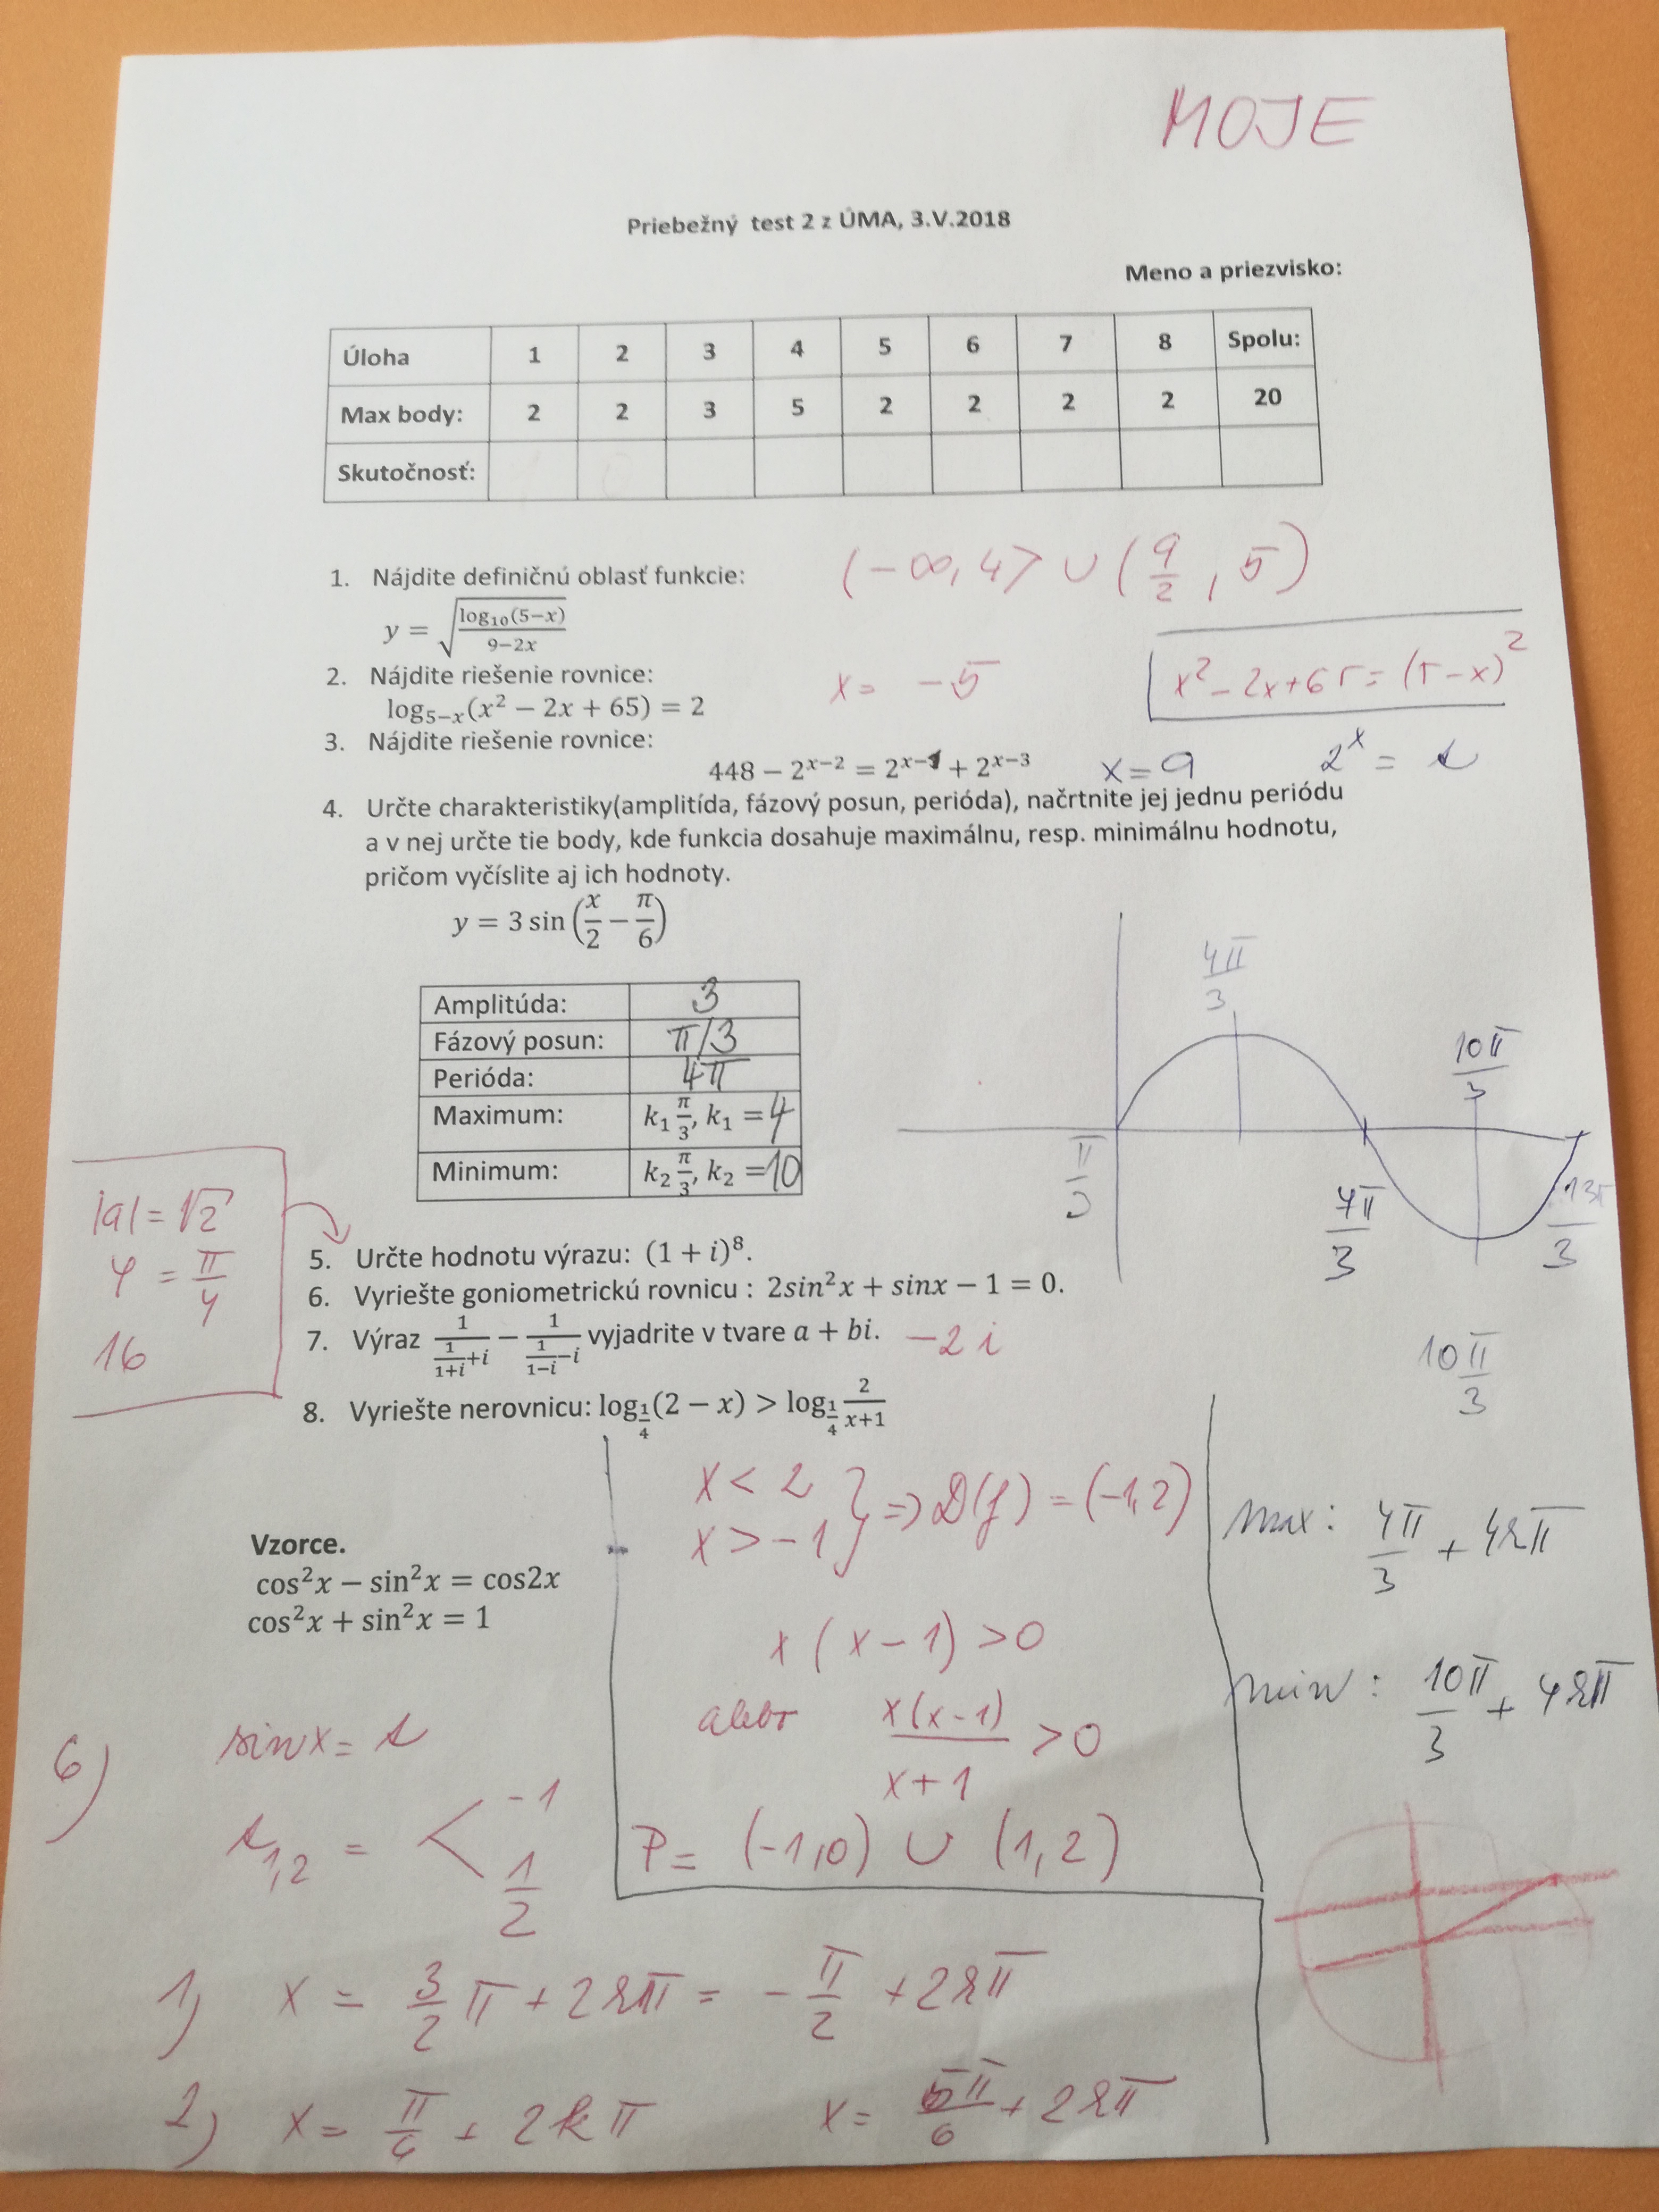 MOJE
Priebežný test 2 z ÚMA, 3.V.2018
Meno a priezvisko:
Úloha 1 2 3 4 5 6 7 8 Spolu:
Max body: 2 2 3 5 2 2 2 2 20
Skutočnosť:
1. Nájdite definičnú oblasť funkcie: (-∞, 4> ∪ (9/2, 5)
y = √(log₁₀(5−x)/(9−2x))
2. Nájdite riešenie rovnice: x = -5
x² - 2x + 65 = (5-x)²
log₅₋ₓ(x² − 2x + 65) = 2
3. Nájdite riešenie rovnice:
448 − 2ˣ⁻² = 2ˣ⁻¹ + 2ˣ⁻³ x = 9 2ˣ = s
4. Určte charakteristiky(amplitída, fázový posun, perióda), načrtnite jej jednu periódu
a v nej určte tie body, kde funkcia dosahuje maximálnu, resp. minimálnu hodnotu,
pričom vyčíslite aj ich hodnoty.
y = 3 sin(x/2 − π/6)
Amplitúda: 3
Fázový posun: π/3
Perióda: 4π
Maximum: k₁ π/3, k₁ = 4
Minimum: k₂ π/3, k₂ = 10
4π/3
10π/3
π/3
7π/3
13π/3
10π/3
|a| = √2
φ = π/4
16
5. Určte hodnotu výrazu: (1 + i)⁸.
6. Vyriešte goniometrickú rovnicu : 2sin²x + sinx − 1 = 0.
7. Výraz 1/(1/(1+i)+i) − 1/(1/(1−i)−i) vyjadrite v tvare a + bi. -2i
8. Vyriešte nerovnicu: log_{1/4}(2 − x) > log_{1/4} 2/(x+1)
x < 2
x > -1 } => D(f) = (-1,2)
x(x-1) > 0
alebo x(x-1)/(x+1) > 0
P = (-1,0) ∪ (1,2)
max: 4π/3 + 4kπ
min: 10π/3 + 4kπ
Vzorce.
cos²x − sin²x = cos2x
cos²x + sin²x = 1
6) sinx = s
s₁,₂ = < -1
1/2
1) x = 3/2 π + 2kπ = -π/2 + 2kπ
2) x = π/6 + 2kπ x = 5π/6 + 2kπ